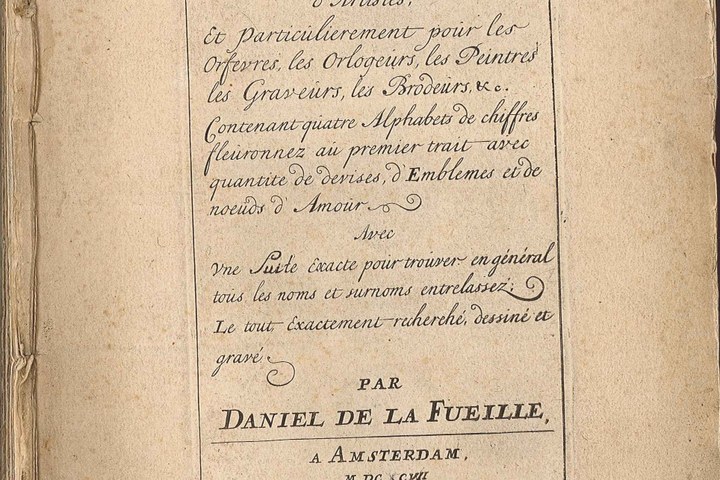 d'Artistes,
Et Particulierement pour les
Orfevres, les Orlogeurs, les Peintres
les Graveurs, les Brodeurs, &c.
Contenant quatre Alphabets de chiffres
fleuronnez au premier trait avec
quantite de devises, d'Emblemes et de
noeuds d'Amour
Avec
Vne Suite Exacte pour trouver en général
tous les noms et surnoms entrelassez;
Le tout Exactement recherché, dessiné et
gravé
PAR
DANIEL DE LA FUEILLE,
A AMSTERDAM,
M DC XCVII